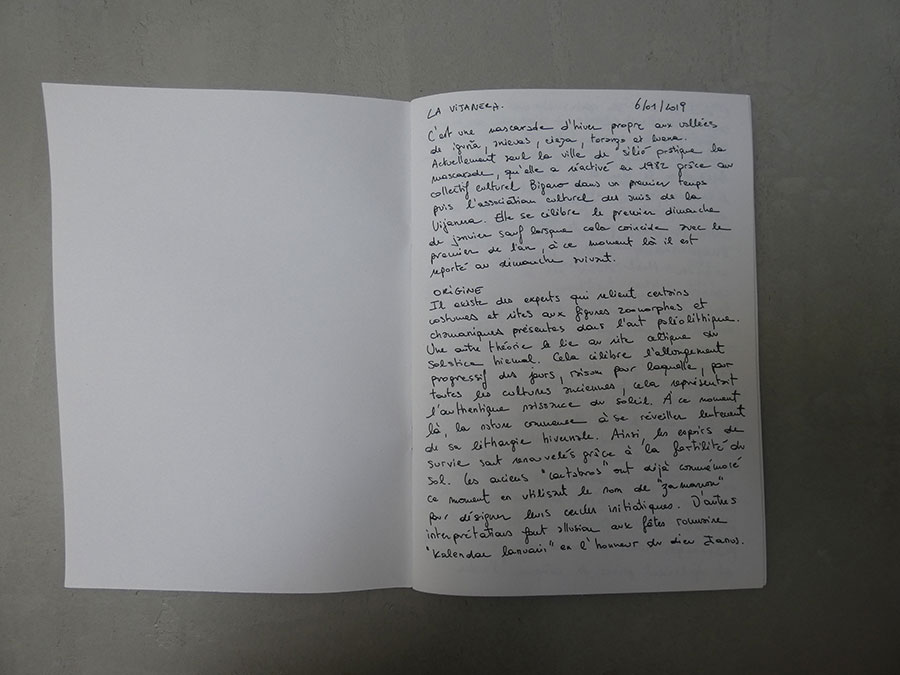 LA VIJANERA. 6/01/2019
C'est une mascarade d'hiver propre aux vallées
de iguña, anievas, cieza, toranzo et luena.
Actuellement seul la ville de silió pratique la
mascarade, qu'elle a réactivé en 1982 grâce au
collectif culturel Bigaro dans un premier temps
puis l'association culturel des amis de la
Vijanera. Elle se célèbre le premier dimanche
de janvier sauf lorsque cela coincide avec le
premier de l'an, à ce moment là il est
reporté au dimanche suivant.
ORIGINE
Il existe des experts qui relient certains
costumes et rites aux figures zoomorphes et
chamaniques présentes dans l'art paléolithique.
Une autre théorie le lie au rite celtique du
Solstice hiemal. Cela célèbre l'allongement
progressif des jours, raison pour laquelle, pour
toutes les cultures anciennes, cela représentait
l'authentique naissance du soleil. À ce moment
là, la nature commence à se réveiller lentement
de sa lithargie hivernale. Ainsi, les espoirs de
survie sont renouvelés grâce à la fertilité du
sol. Les anciens "cantabros" ont déjà commémoré
ce moment en utilisant le nom de "zamarron"
pour désigner leurs cercles initiatiques. D'autres
interprétations font allusion aux fêtes romaine
"Kalendae Ianuarii" en l'honneur du dieu Janus.